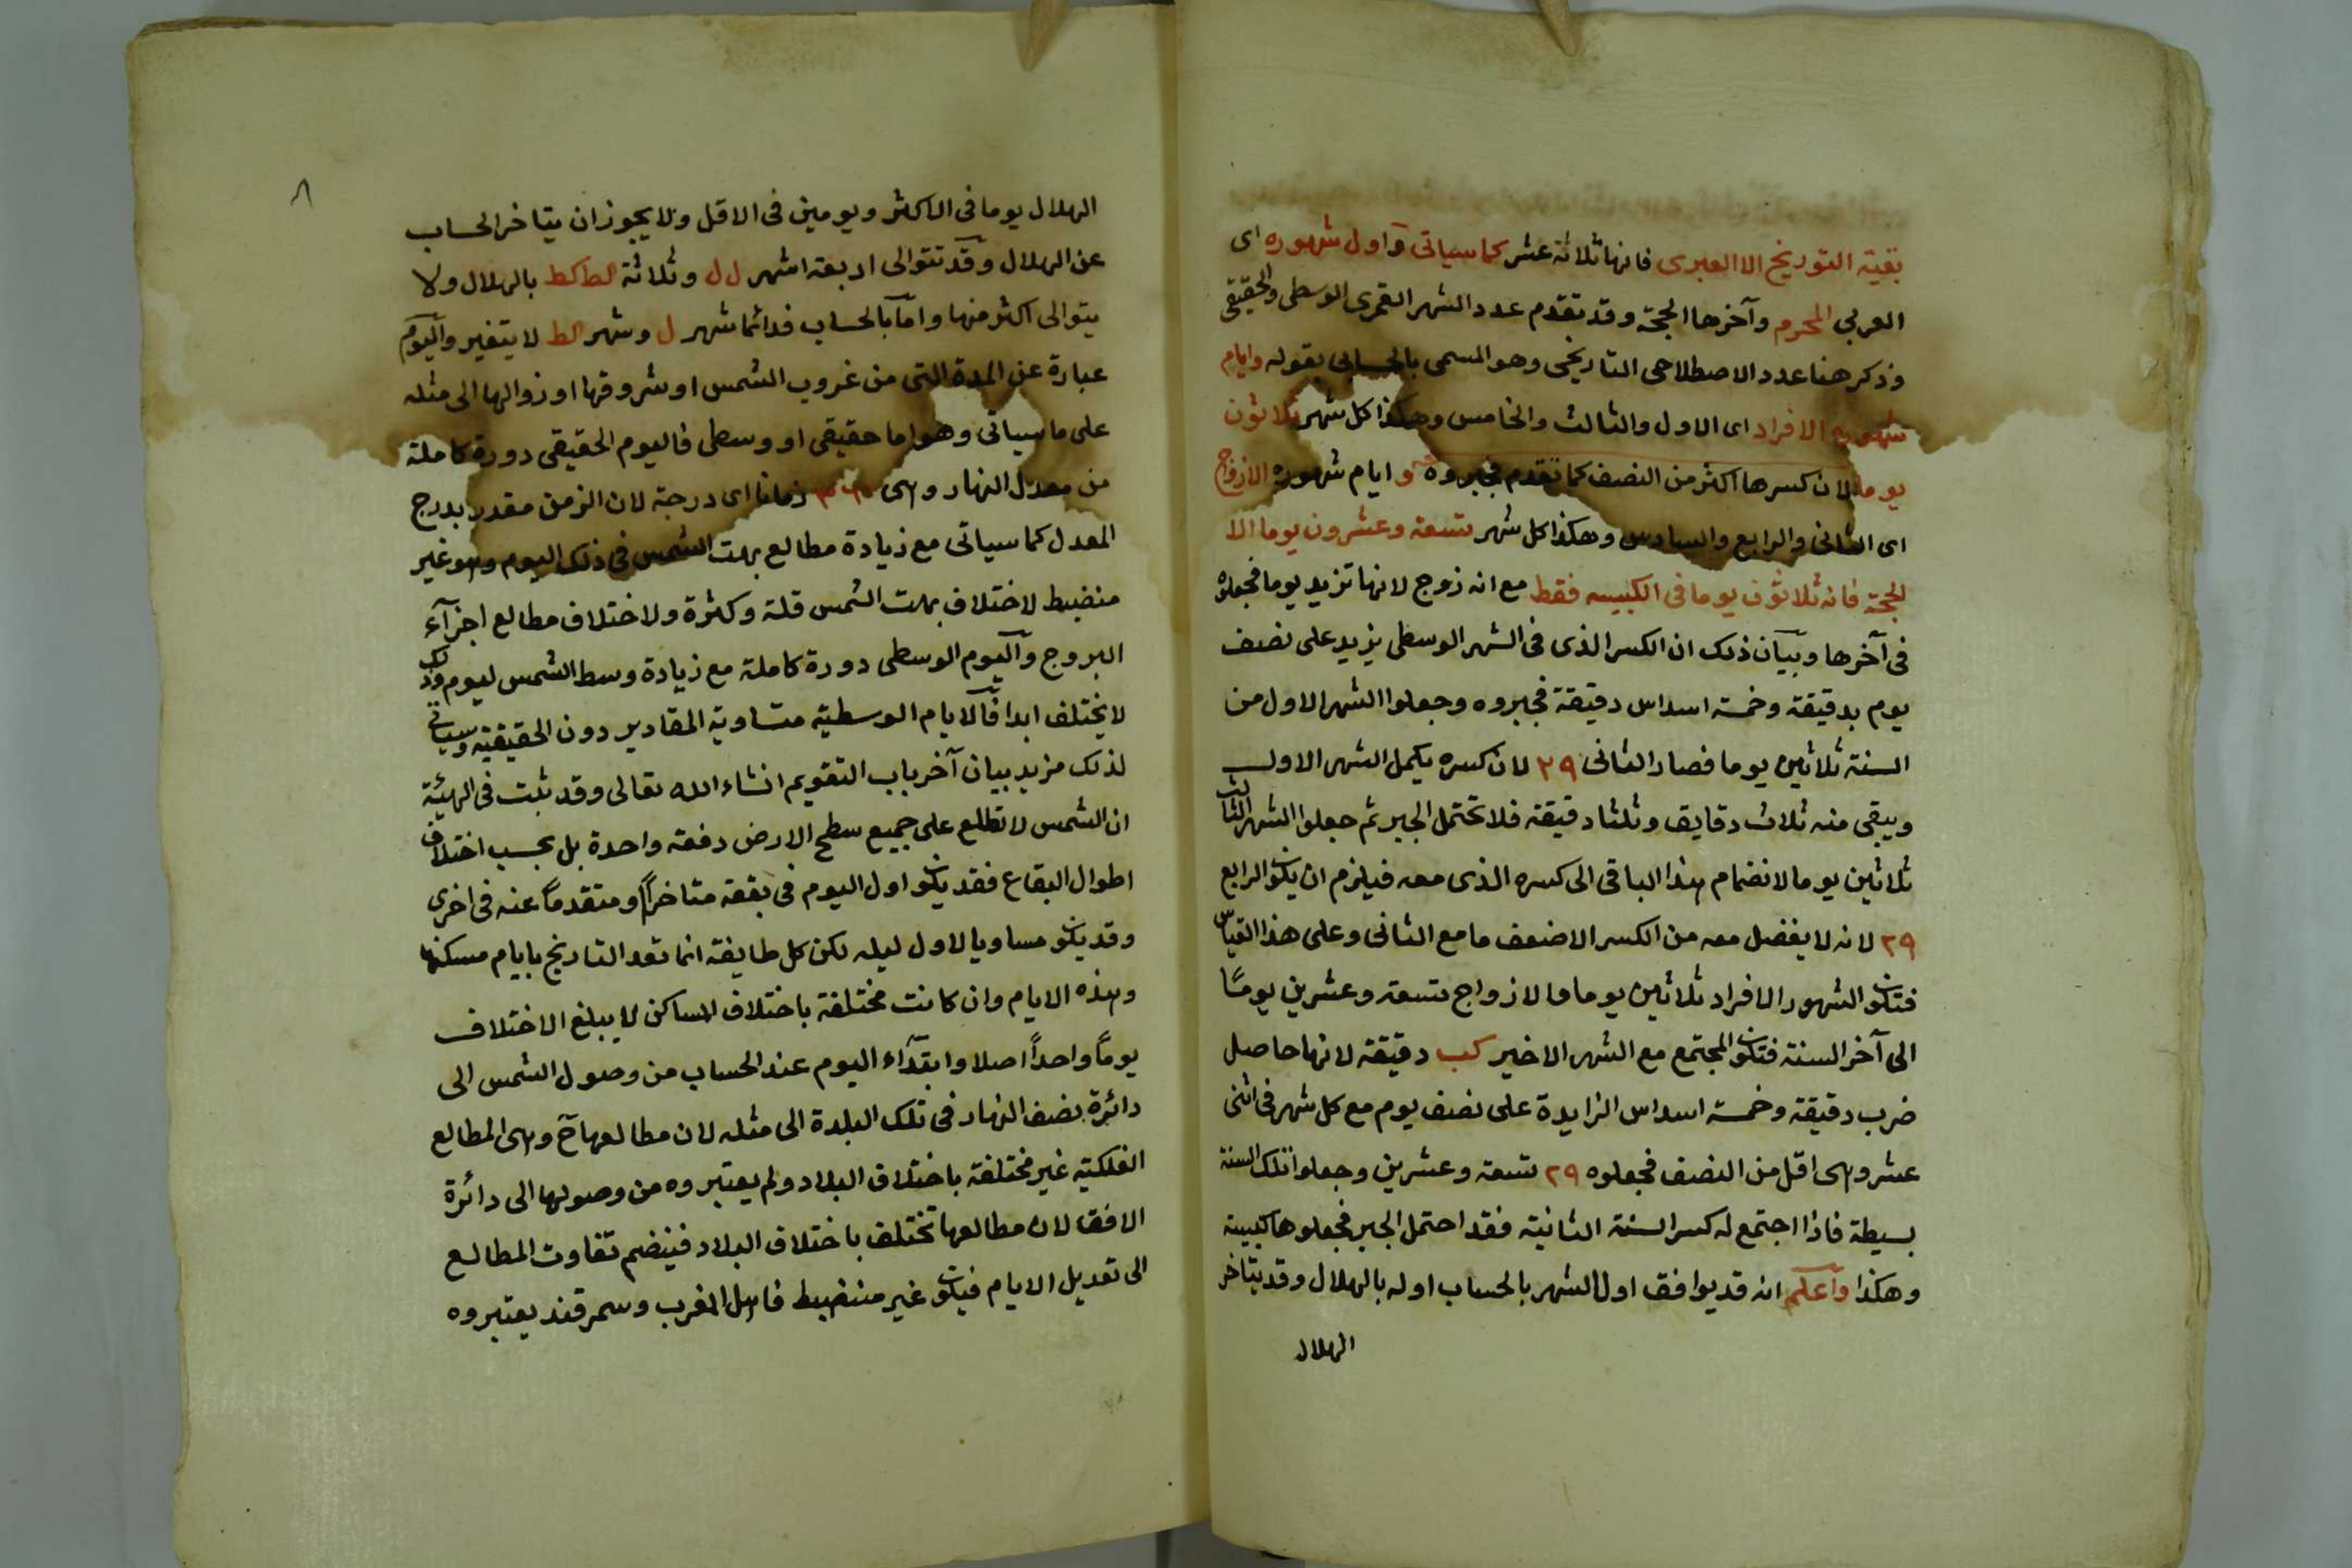 بقية التوريخ الا العبرى فانها ثلاثة عشر كما سياتى واول شهوره اى
العربي المحرم وآخرها الحجة وقد تقدم عدد الشهر القمرى الوسطى والحقيقى
وذكر هنا عدد الاصطلاحى التاريخى وهو المسمى بالحسابى بقوله وايام
شهوره الافراد اى الاول والثالث والخامس وهكذا كل شهر ثلاثون
يوما لان كسرها اكثر من النصف كما تقدم فجبروه و ايام شهوره الازواج
اى الثانى والرابع والسادس وهكذا كل شهر تسعة وعشرون يوما الا
الحجة فانه ثلاثون يوما فى الكبيسه فقط مع انه زوج لانها تزيد يوما فجعلوه
فى آخرها وبيان ذلك ان الكسر الذى فى الشهر الوسطى يزيد على نصف
يوم بدقيقة وخمسة اسداس دقيقة فجبروه وجعلوا الشهر الاول من
السنة ثلاثين يوما فصار الثانى ٢٩ لان كسره يكمل الشهر الاول
ويبقى منه ثلاث دقايق وثلثا دقيقة فلا تحتمل الجبر ثم جعلوا الشهر الثالث
ثلاثين يوما لانضمام هذا الباقى الى كسره الذى معه فيلزم ان يكون الرابع
٢٩ لانه لا يفضل معه من الكسر الا ضعف ما مع الثانى وعلى هذا القياس
فتكون الشهور الافراد ثلاثين يوما والازواج تسعة وعشرين يومًا
الى آخر السنة فتكون المجتمع مع الشهر الاخير كب دقيقة لانها حاصل
ضرب دقيقة وخمسة اسداس الزايدة على نصف يوم مع كل شهر فى اثنى
عشر وهى اقل من النصف فجعلوه ٢٩ تسعة وعشرين وجعلوا تلك السنة
بسيطة فاذا اجتمع له كسر السنة الثانية فقد احتمل الجبر فجعلوها كبيسة
وهكذا واعلم انه قد يوافق اول الشهر بالحساب اوله بالهلال وقد يتاخر
الهلال
٨
الهلال يوما فى الاكثر ويومين فى الاقل ولا يجوز ان يتاخر الحساب
عن الهلال وقد تتوالى اربعة اشهر ل ل وثلاثة كط كط بالهلال ولا
يتوالى اكثر منها واما بالحساب فدائما شهر ل وشهر كط لا يتغير واليوم
عبارة عن المدة التى من غروب الشمس او شروقها او زوالها الى مثله
على ما سياتى وهو اما حقيقى او وسطى فاليوم الحقيقى دورة كاملة
من معدل النهار وهى ٣٦٠ زمانا اى درجة لان الزمن مقدر بدرج
المعدل كما سياتى مع زيادة مطالع بهت الشمس فى ذلك اليوم وهو غير
منضبط لاختلاف بهت الشمس قلة وكثرة ولاختلاف مطالع اجزآء
البروج واليوم الوسطى دورة كاملة مع زيادة وسط الشمس ليوم وذلك
لا يختلف ابدا فالايام الوسطية متساوية المقادير دون الحقيقية وسياتى
لذلك مزيد بيان آخر باب التقويم انشاء الله تعالى وقد ثبت فى الهيئة
ان الشمس لا تطلع على جميع سطح الارض دفعة واحدة بل بحسب اختلاف
اطوال البقاع فقد يكون اول اليوم فى بقعة متاخراً ومتقدماً عنه فى اخرى
وقد يكون مساويا لاول ليله لكن كل طايفة انما تعد التاريخ بايام مسكنها
وهذه الايام وان كانت مختلفة باختلاف المساكن لا يبلغ الاختلاف
يوماً واحداً اصلا وابتدآء اليوم عند الحساب من وصول الشمس الى
دائرة نصف النهار فى تلك البلدة الى مثله لان مطالعها ح وهى المطالع
الفلكية غير مختلفة باختلاف البلاد ولم يعتبروه من وصولها الى دائرة
الافق لان مطالعها تختلف باختلاف البلاد فينضم تفاوت المطالع
الى تعديل الايام فيكون غير منضبط فاهل المغرب وسمرقند يعتبروه